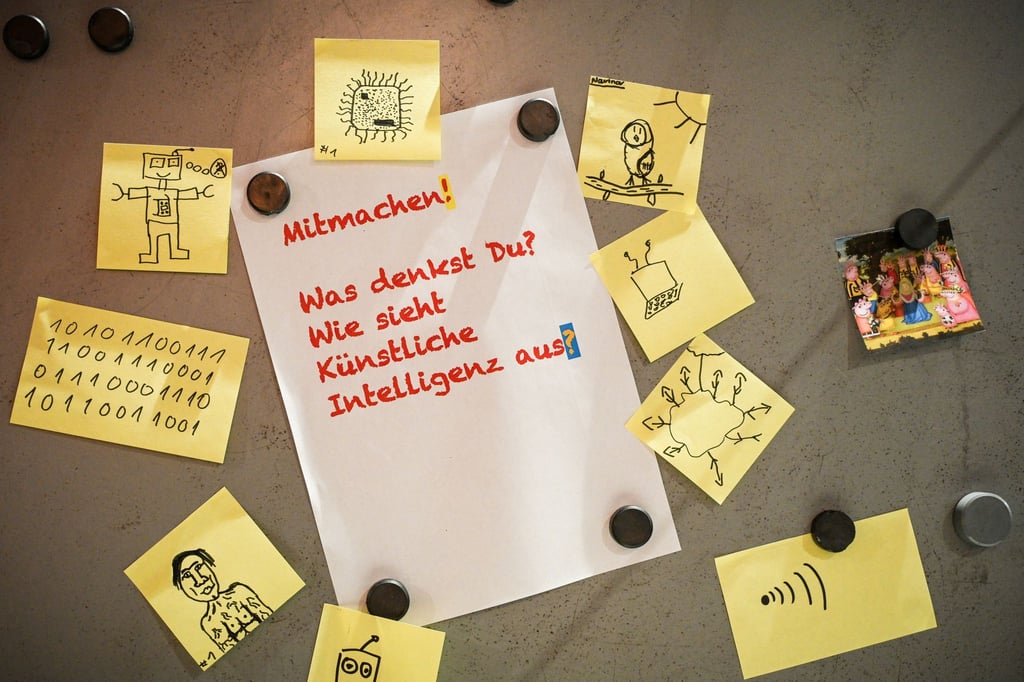 Mitmachen!
Was denkst Du?
Wie sieht
Künstliche
Intelligenz aus?
#1
101011001111
110011110001
01110001110
1011001 1001
#1